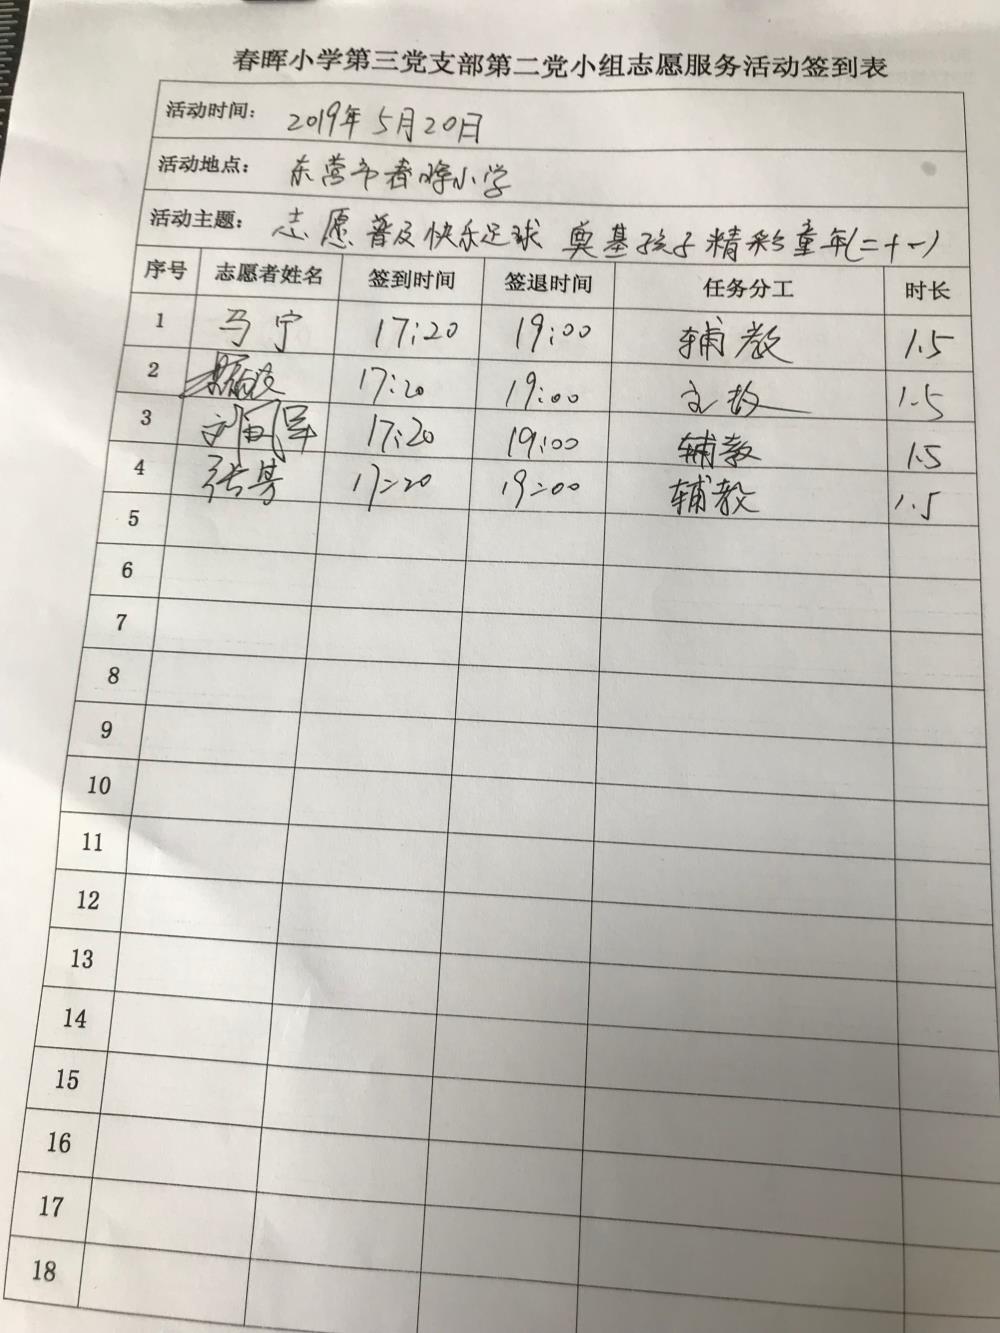 春晖小学第三党支部第二党小组志愿服务活动签到表
活动时间： 2019年5月20日
活动地点： 东营市春晖小学
活动主题： 志愿普及快乐足球 奠基孩子精彩童年(二十一)
序号 志愿者姓名 签到时间 签退时间 任务分工 时长
1 马宁 17:20 19:00 辅教 1.5
2 17:20 19:00 主教 1.5
3 17:20 19:00 辅教 1.5
4 17:20 19:00 辅教 1.5
5
6
7
8
9
10
11
12
13
14
15
16
17
18